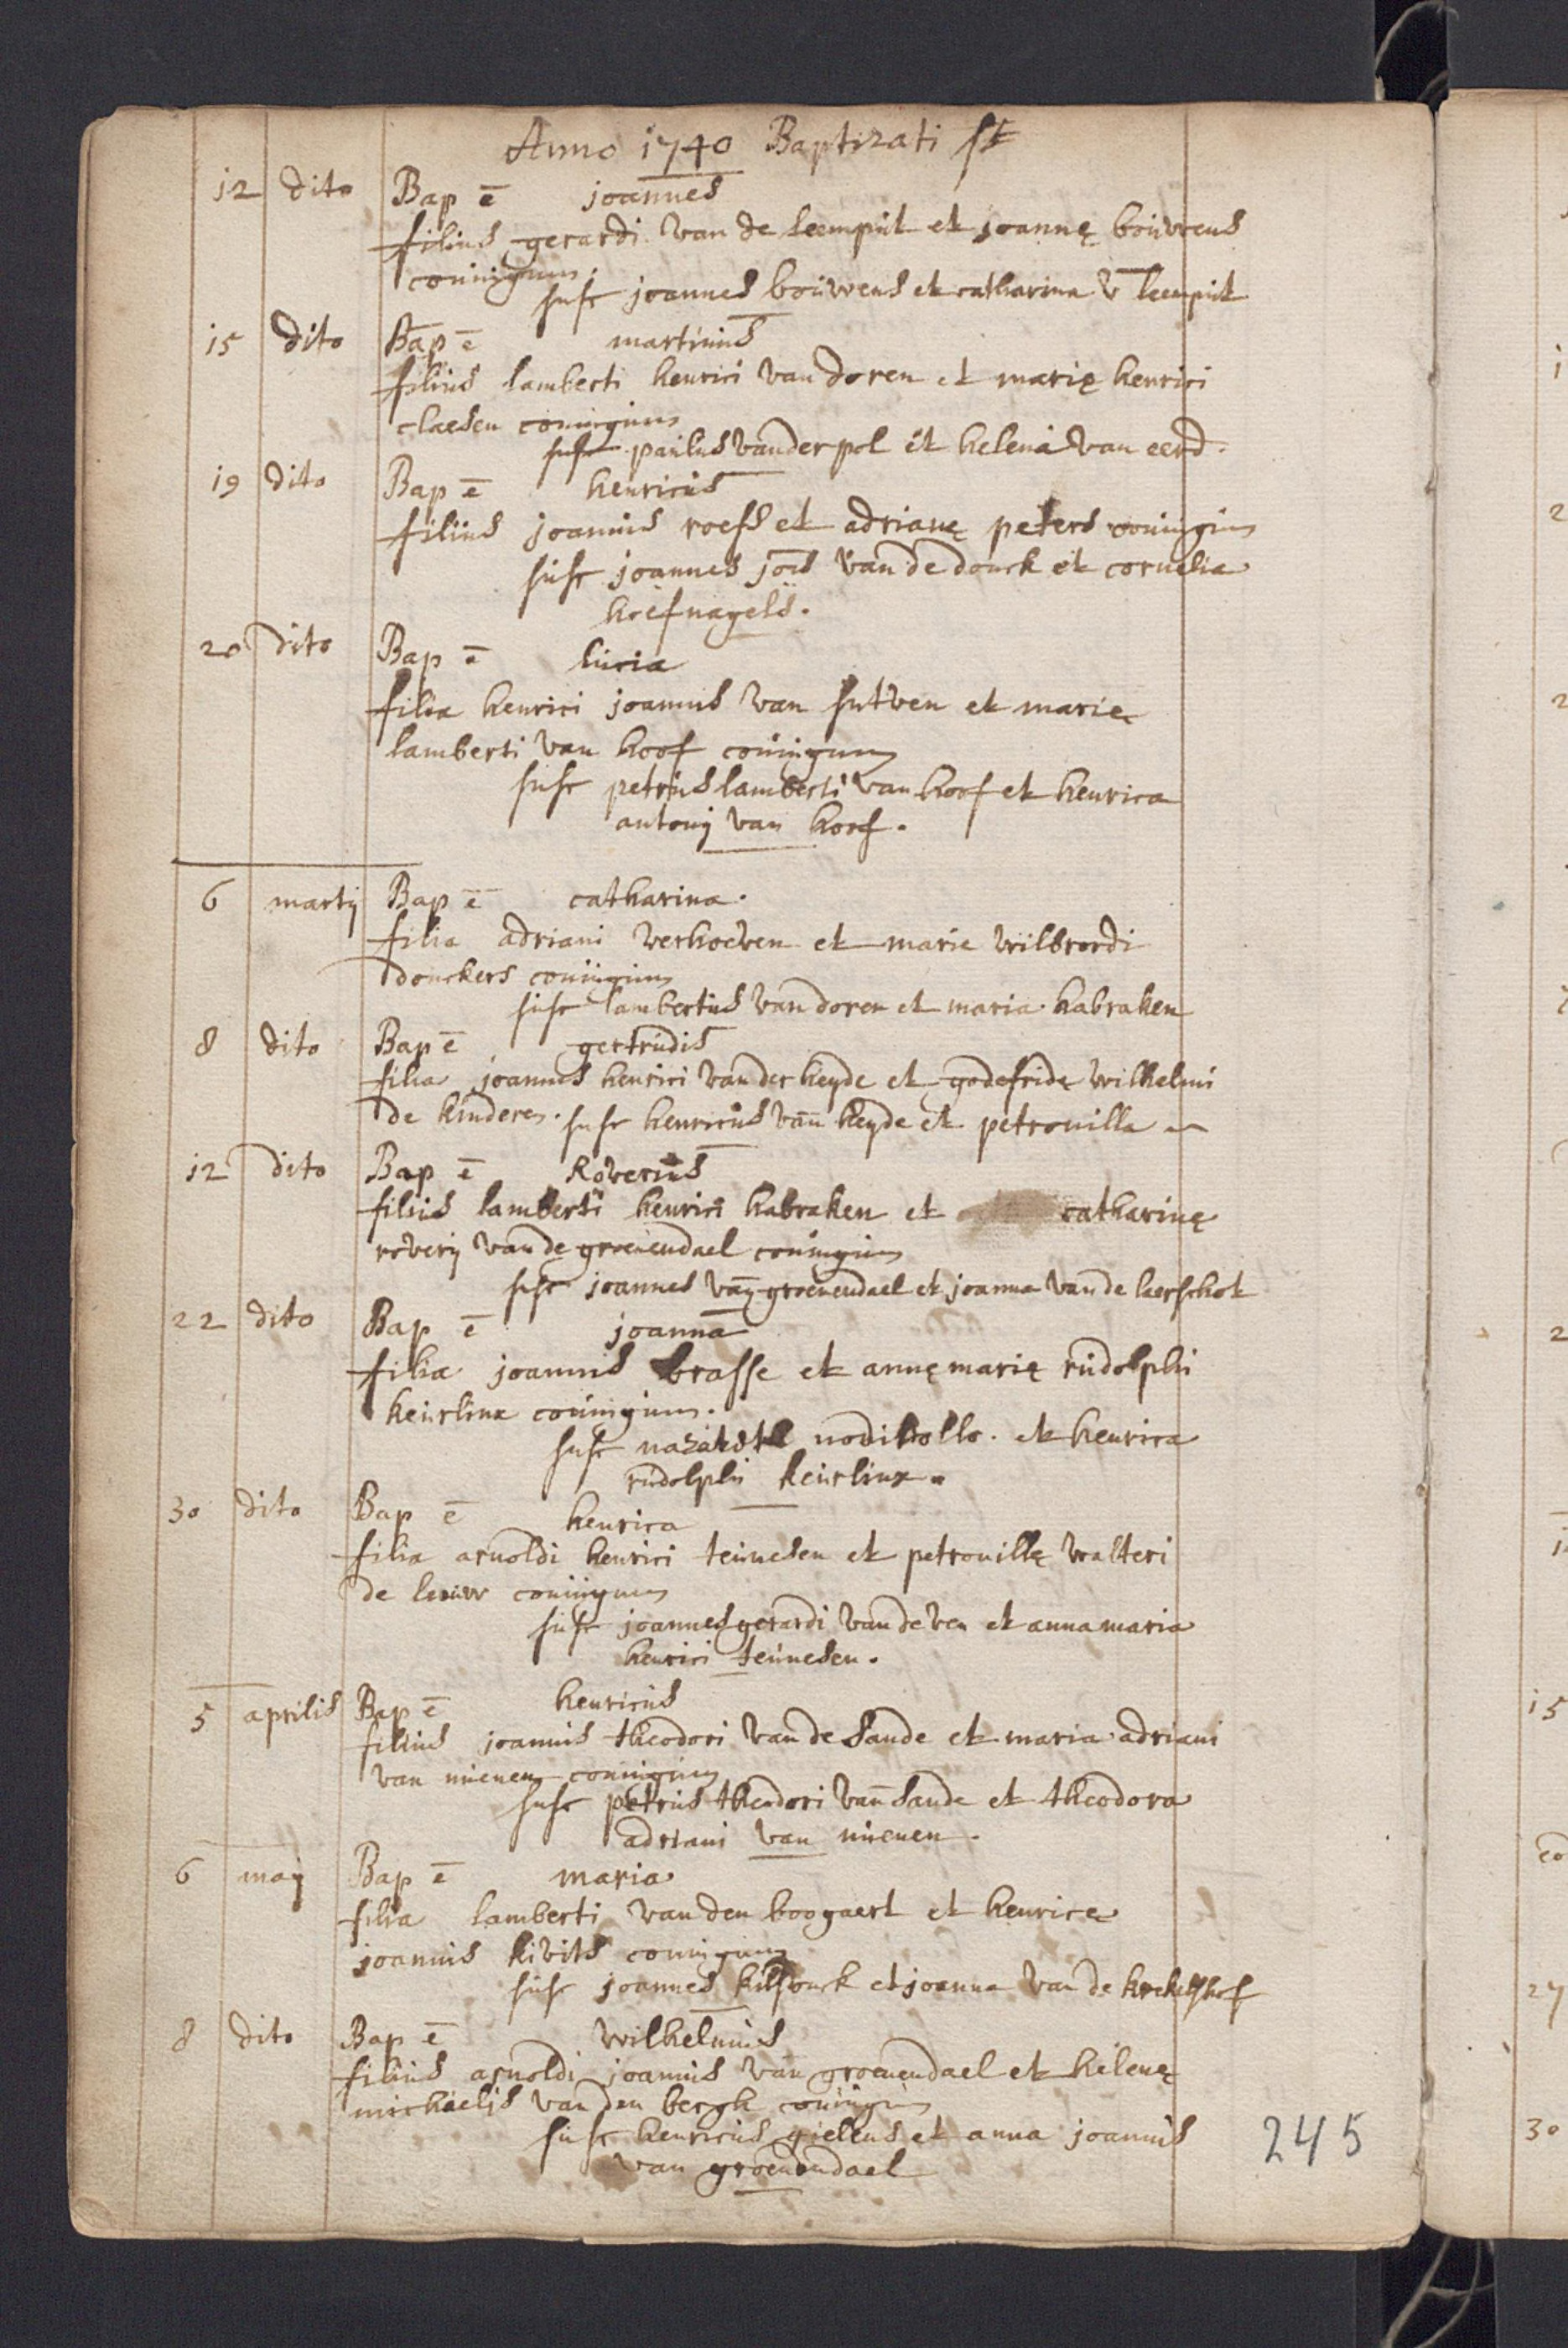 Anno 1740 Baptizati st
12 dito Bap ē joannes
filius gerardi van de Leempüt et joannę boüwens
coniugum
susc joannes boüwens et catharina v leempüt
15 dito Bap ē martinus
filius lamberti henrici van doren et marię henrici
claesen coniugum
susc paulus vander pol et helena van eerd.
19 dito Bap ē henricus
filius joannis roefs et adrianę peters coniugum
susc joannes joēs van de donck et cornelia
hoefnagels.
20 dito Bap ē lucia
filia henrici joannis van sutven et marię
lamberti van hoof coniugum
susc petrus lamberti van hoof et henrica
antonij van hoof.
6 martij Bap ē catharina.
filia adriani verhoeven et marie wilbrordi
donckers coniugum
susc lambertus van doren et maria habraken
8 dito Bap ē gertrudis
filia joannis henrici van der heyde et godefridę wilhelmi
de kinderen. susc henricus van heyde et petronilla
12 dito Bap ē Roverius
filius lamberti henrici habraken et catharinę
roverij van de groenendael coniugum
susc joannes van groenendael et joanna van de laerschot
22 dito Bap ē joanna
filia joannis brasse et annę marię rudolphi
keurlinx coniugum.
susc et henrica
rudolphi keurlinx
30 dito Bap ē henrica
filia arnoldi henrici teunesen et petronillę walteri
de leeuw coniugum
susc joannes gerardi van de ven et anna maria
henrici teunesen.
5 aprilis Bap ē henricus
filius joannis theodori van de Sande et maria adriani
van nuenen coniugum
susc petrus theodori van Sande et theodora
adriani van nuenen.
6 maij Bap ē maria
filia lamberti van den boogaert et henricę
joannis kivits coniugum
susc joannes kilsdonck et joanna van de krekelshof
8 dito Bap ē wilhelmus
filius arnoldi joannis van groenendael et helenę
michaelis van den bergh coniugum
susc henricus gielens et anna joannis
van groenendael
245